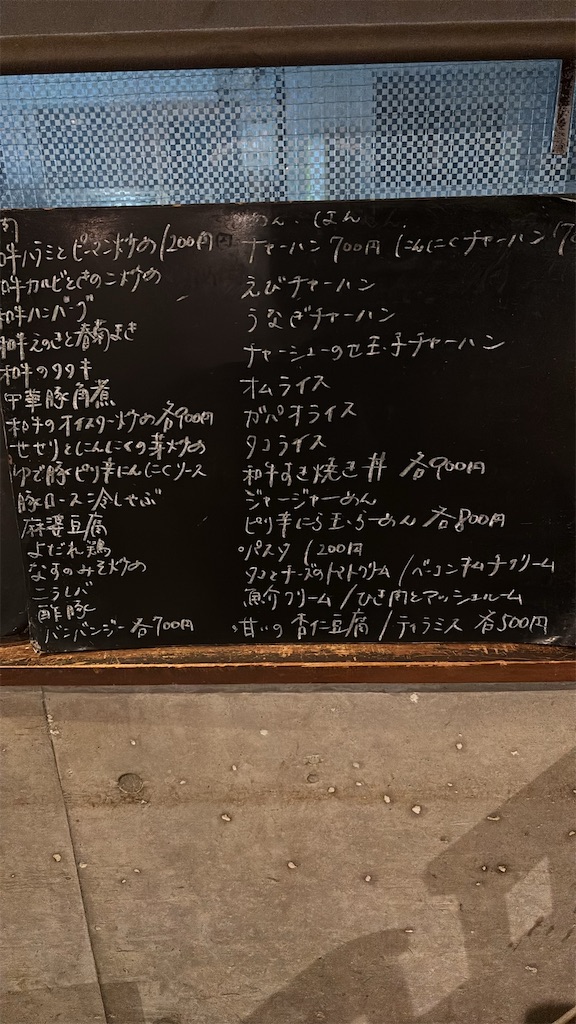 肉
和牛ハラミとピーマン炒め 1200円
和牛カルビときのこ炒め
和牛ハンバーグ
和牛えのきと春菊まき
和牛のタタキ
中華豚角煮
和牛のオイスター炒め 各900円
せせりとにんにくの芽炒め
ゆで豚ピリ辛にんにくソース
豚ロース冷しゃぶ
麻婆豆腐
よだれ鶏
なすのみそ炒め
ニラレバ
酢豚
バンバンジー 各700円
めん・はん
チャーハン 700円 (にんにくチャーハン
えびチャーハン
うなぎチャーハン
チャーシューのせ玉子チャーハン
オムライス
ガパオライス
タコライス
和牛すき焼き丼 各900円
ジャージャーめん
ピリ辛にら玉らーめん 各800円
・パスタ 1200円
タコとチーズのトマトクリーム / ベーコンキムチクリーム
魚介クリーム / ひき肉とマッシュルーム
・甘いの 杏仁豆腐 / ティラミス 各500円